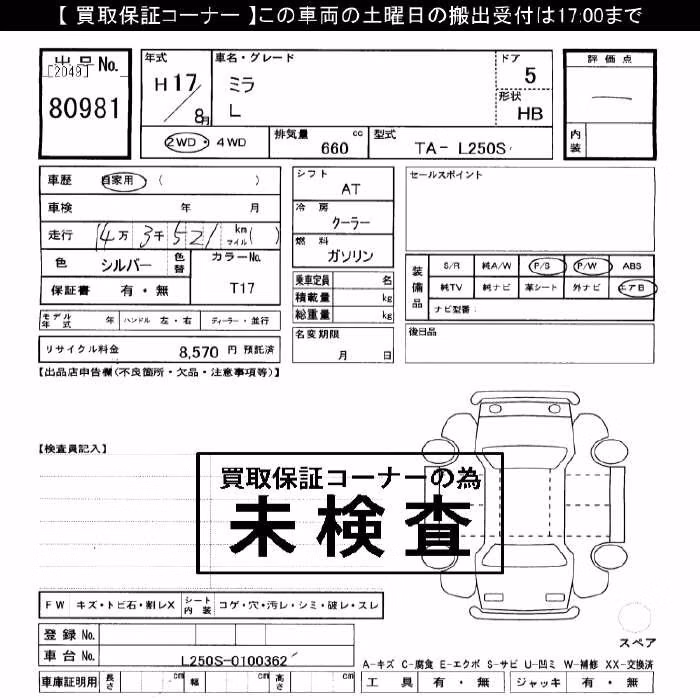 【 買取保証コーナー 】この車両の土曜日の搬出受付は17:00まで
出品No.
[2049]
80981
年式
H17/8月
車名・グレード
ミラ
L
ドア
5
形状
HB
評価点
—
内装
2WD・4WD
排気量 660 cc
型式 TA-L250S
車歴 自家用 ( )
車検 年 月
走行 14万3千521 km マイル( )
色 シルバー 色替
カラーNo.
T17
保証書 有・無
モデル年式 年 ハンドル 左・右 ディーラー・並行
リサイクル料金 8,570 円 預託済
シフト
AT
冷房
クーラー
燃料
ガソリン
乗車定員 名
積載量 kg
総重量 kg
名変期限
月 日
セールスポイント
装備品
S/R 純A/W P/S P/W ABS
純TV 純ナビ 革シート 外ナビ エアB
ナビ型番:
後日品
【出品店申告欄(不良箇所・欠品・注意事項等)】
【検査員記入】
買取保証コーナーの為
未検査
FW キズ・トビ石・割レX シート内装 コゲ・穴・汚レ・シミ・破レ・スレ
登録No.
車台No. L250S-0100362
車庫証明用 長さ cm 幅 cm 高さ cm
スペア
A-キズ C-腐食 E-エクボ S-サビ U-凹ミ W-補修 XX-交換済
工具 有・無 ジャッキ 有・無